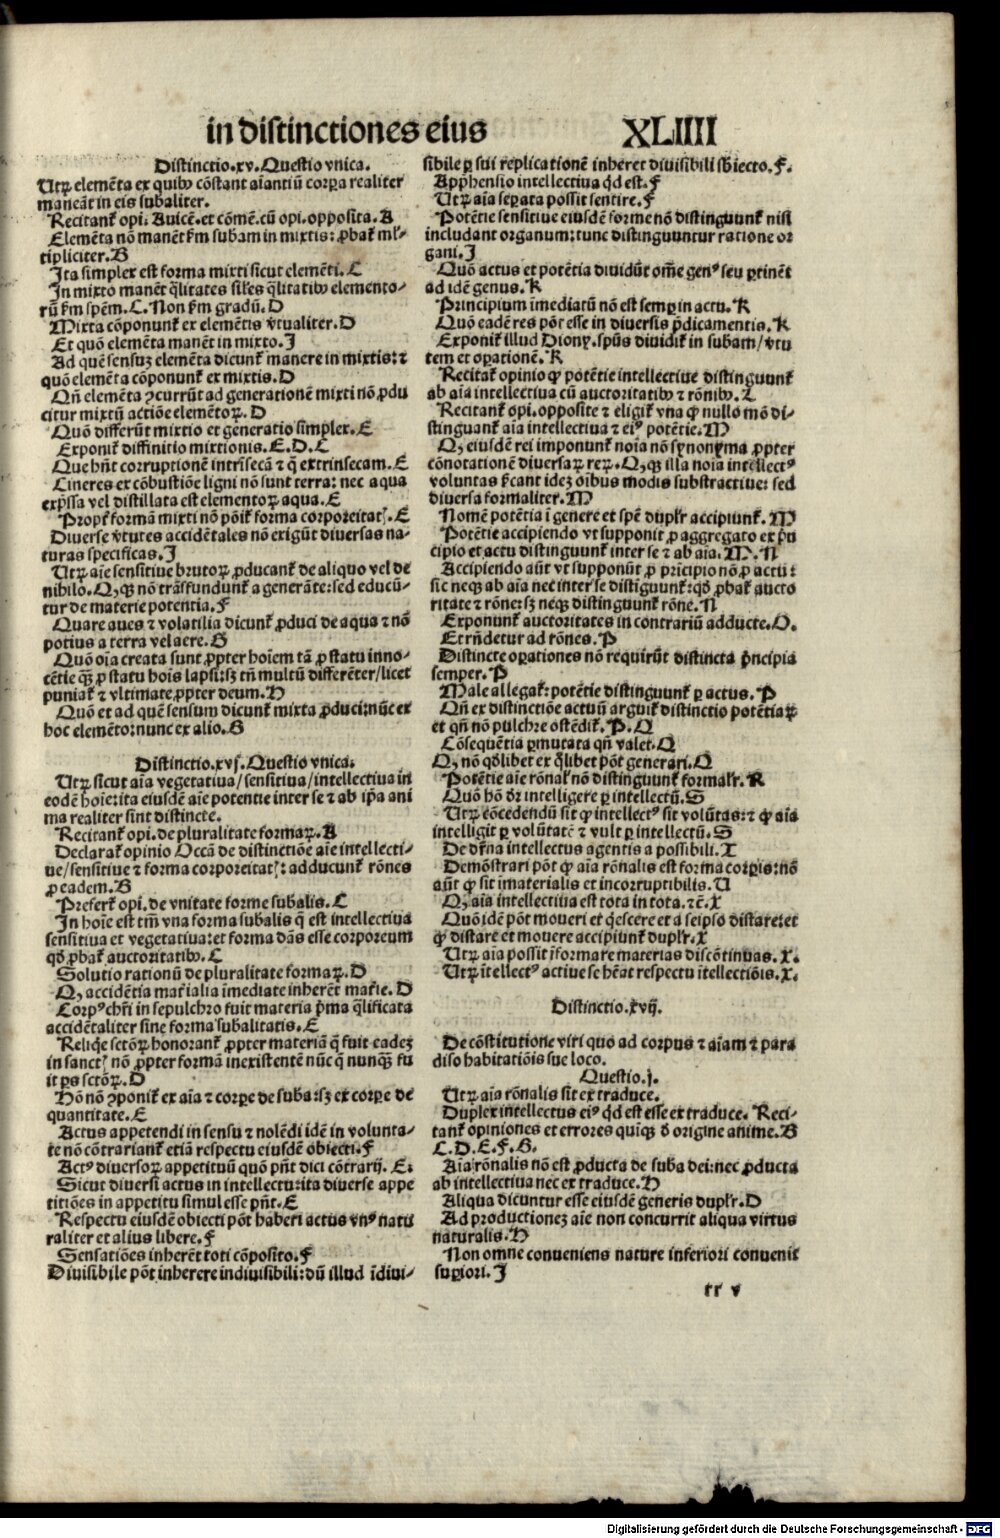 in distinctiones eius XLIIII
Distinctio.xv.Questio vnica.
Utrꝝ elemẽta ex quibꝰ cõstant aĩantiũ corꝑa realiter
maneãt in eis subaliter.
Recitant̃ opi: Auicẽ.et cõmẽ.cũ opi.opposita.A
Elemẽta nõ manẽt fm̃ subam in mixtis: ꝓbat̃ ml̃-
tipliciter.B
Ita simplex est forma mixti sicut elemẽti.C
In mixto manẽt q̃litates sil̃es q̃litatibꝰ elemento-
rũ fm̃ spẽm.C.Non fm̃ gradũ.D
Mixta cõponunt̃ ex elemẽtis v̾tualiter.D
Et quõ elemẽta manẽt in mixto.J
Ad quẽ sensuꝫ elemẽta dicunt̃ manere in mixtis: ⁊
quõ elemẽta cõponunt̃ ex mixtis.D
Qñ elementa ꝯcurrũt ad generationẽ mixti nõ ꝓdu
citur mixtũ actiõe elemẽtoꝝ.D
Quõ differũt mixtio et generatio simplex.E
Exponit̃ diffinitio mixtionis.E.D.C
Que hñt corruptionẽ intrĩsecã ⁊ q̃ extrinsecam.E
Cineres ex cõbustiõe ligni nõ sunt terra: nec aqua
exp̃ssa vel distillata est elementoꝝ aqua.E
Propt̃ formã mixti nõ põit̃ forma corporeitatꝭ.E
Diuerse v̾tutes accidẽtales nõ exigũt diuersas na-
turas specificas.J
Utrꝝ aĩe sensitiue brutoꝝ ꝓducant̃ de aliquo vel de
nihilo.Q,qꝫ nõ trãsfundunt̃ a generãte: sed educũ-
tur de materie potentia.F
Quare aues ⁊ volatilia dicunt̃ ꝓduci de aqua ⁊ nõ
potius a terra vel aere.G
Quõ oĩa creata sunt ꝓpter hoĩem tã ꝓ statu inno-
cẽtie qꝫ ꝓ statu hoĩs lapsi: sꝫ tñ multũ differẽter/licet
puniat̃ ⁊ vltimate ꝓpter deum.H
Quõ et ad quẽ sensum dicunt̃ mixta ꝓduci: nũc ex
hoc elemẽto: nunc ex alio.G
Distinctio.xvj.Questio vnica.
Utrꝝ sicut aĩa vegetatiua/sensitiua/intellectiua in
eodẽ hoĩe: ita eiusdẽ aĩe potentie inter se ⁊ ab ip̃a ani
ma realiter sint distincte.
Recitant̃ opi.de pluralitate formaꝝ.A
Declarat̃ opinio Occã de distinctiõe aĩe intellecti-
ue/sensitiue ⁊ forma corporeitatꝭ: adducunt̃ rõnes
ꝓ eadem.B
Prefert̃ opi.de vnitate forme subalis.C
In hoĩe est tm̃ vna forma subalis q̃ est intellectiua
sensitiua et vegetatiua: et forma dãs esse corporeum
qđ ꝓbat̃ auctoritatibꝰ.C
Solutio rationũ de pluralitate formaꝝ.D
Q, accidẽtia mat̃ialia ĩmediate inherẽt mat̃ie.D
Corpꝰ ch̃ri in sepulchro fuit materia p̃ma q̃lificata
accidẽtaliter sine forma subalitatis.E
Reliq̃e sctõꝝ honorant̃ ꝓpter materiã q̃ fuit eadeꝫ
in sanctꝭ nõ ꝓpter formã inexistentẽ nũc q̃ nunqꝫ fu
it ꝑs sctõꝝ.D
Hõ nõ ꝯponit̃ ex aĩa ⁊ corꝑe de suba: sꝫ ex corꝑe de
quantitate.E
Actus appetendi in sensu ⁊ nolẽdi idẽ in volunta-
te nõ cõtrariant̃ etiã respectu eiusdẽ obiecti.F
Actꝰ diuersoꝝ appetituũ quõ pñt dici cõtrarij.E.
Sicut diuersi actus in intellectu: ita diuerse appe
titiões in appetitu simul esse pñt.E
Respectu eiusdẽ obiecti põt haberi actus vnꝰ natu
raliter et alius libere.F
Sensatiões inherẽt toti cõposito.F
Diuisibile põt inherere indiuisibili: dũ illud ĩdiui-
sibile ꝑ sui replicationẽ inheret diuisibili sb̃iecto.F.
App̃hensio intellectiua qd est.F
Utrꝝ aĩa seꝑata possit sentire.F
Potẽtie sensitiue eiusdẽ forme nõ distinguunt̃ nisi
includant organum: tunc distinguuntur ratione or
gani.J
Quõ actus et potẽtia diuidũt om̃e genꝰ seu ꝑtinẽt
ad idẽ genus.K
Principium ĩmediatũ nõ est semꝑ in actu.K
Quõ eadẽ res põt esse in diuersis p̃dicamentis.K
Exponit̃ illud Diony.spũs diuidit̃ in subam/v̾tu
tem et oꝑationẽ.K
Recitat̃ opinio ꝙ potẽtie intellectiue distinguunt̃
ab aĩa intellectiua cũ auctoritatibꝰ ⁊ rõnibꝰ.L
Recitant̃ opi.opposite ⁊ eligit̃ vna ꝙ nullo mõ di-
stinguant̃ aĩa intellectiua ⁊ eiꝰ potẽtie.M
Q, eiusdẽ rei imponunt̃ noĩa nõ synonyma ꝓpter
cõnotationẽ diuersaꝝ reꝝ.Q,qꝫ illa noĩa intellectꝰ
voluntas s̃cant ideꝫ oĩbus modis substractiue: sed
diuersa formaliter.M
Nomẽ potẽtia ĩ genere et spẽ dupl̃r accipiunt̃.M
Potẽtie accipiendo vt supponit ꝓ aggregato ex p̃n
cipio et actu distinguunt̃ inter se ⁊ ab aĩa.M.N
Accipiendo aũt vt supponũt ꝓ prĩcipio nõ ꝓ actu:
sic neqꝫ ab aĩa nec inter se distĩguunt̃: qđ ꝓbat̃ aucto
ritate ⁊ rõne: sꝫ neqꝫ distinguunt̃ rõne.N
Exponunt̃ auctoritates in contrariũ adducte.O.
Et rñdetur ad rõnes.P
Distincte oꝑationes nõ requirũt distincta p̃ncipia
semper.P
Male allegat̃: potẽtie distinguunt̃ ꝑ actus.P
Qñ ex distinctiõe actuũ arguit̃ distinctio potẽtiaꝝ
et qñ nõ pulchre ostẽdit̃.P.Q
Cõsequẽtia ꝑmutata qñ valet.Q
Q, nõ qdlibet ex q̃libet põt generari.Q
Potẽtie aĩe rõnal̃ nõ distinguunt̃ formal̃r.R
Quõ hõ d̃r intelligere ꝑ intellectũ.S
Utrꝝ cõcedendũ sit ꝙ intellectꝰ sit volũtas: ⁊ ꝙ aĩa
intelligit ꝑ volũtatẽ ⁊ vult ꝑ intellectũ.S
De dr̃na intellectus agentis a possibili.T
Demõstrari põt ꝙ aĩa rõnalis est forma corꝑis: nõ
aũt ꝙ sit ĩmaterialis et incorruptibilis.U
Q, aĩa intellectiua est tota in tota.⁊c̃.X
Quõ idẽ põt moueri et q̃escere et a seipso distare: et
ꝙ distare et mouere accipiunt̃ dupl̃r.X
Utrꝝ aĩa possit ĩformare materias discõtinuas.X.
Utrꝝ ĩtellectꝰ actiue se hẽat respectu ĩtellectiõis.X.
Distinctio.xvij.
De cõstitutione viri quo ad corpus ⁊ aĩam ⁊ para
diso habitatiõis sue loco.
Questio.j.
Utrꝝ aĩa rõnalis sit ex traduce.
Duplex intellectus eiꝰ qd est esse ex traduce. Reci-
tant̃ opiniones et errores quĩqꝫ d̾ origine anime.B
C.D.E.F.G.
Aĩa rõnalis nõ est ꝓducta de suba dei: nec ꝓducta
ab intellectiua nec ex traduce.H
Aliqua dicuntur esse eiusdẽ generis dupl̃r.D
Ad productioneꝫ aĩe non concurrit aliqua virtus
naturalis.H
Non omne conueniens nature inferiori conuenit
suꝑiori.J
rr v
Digitalisierung gefördert durch die Deutsche Forschungsgemeinschaft - DFG